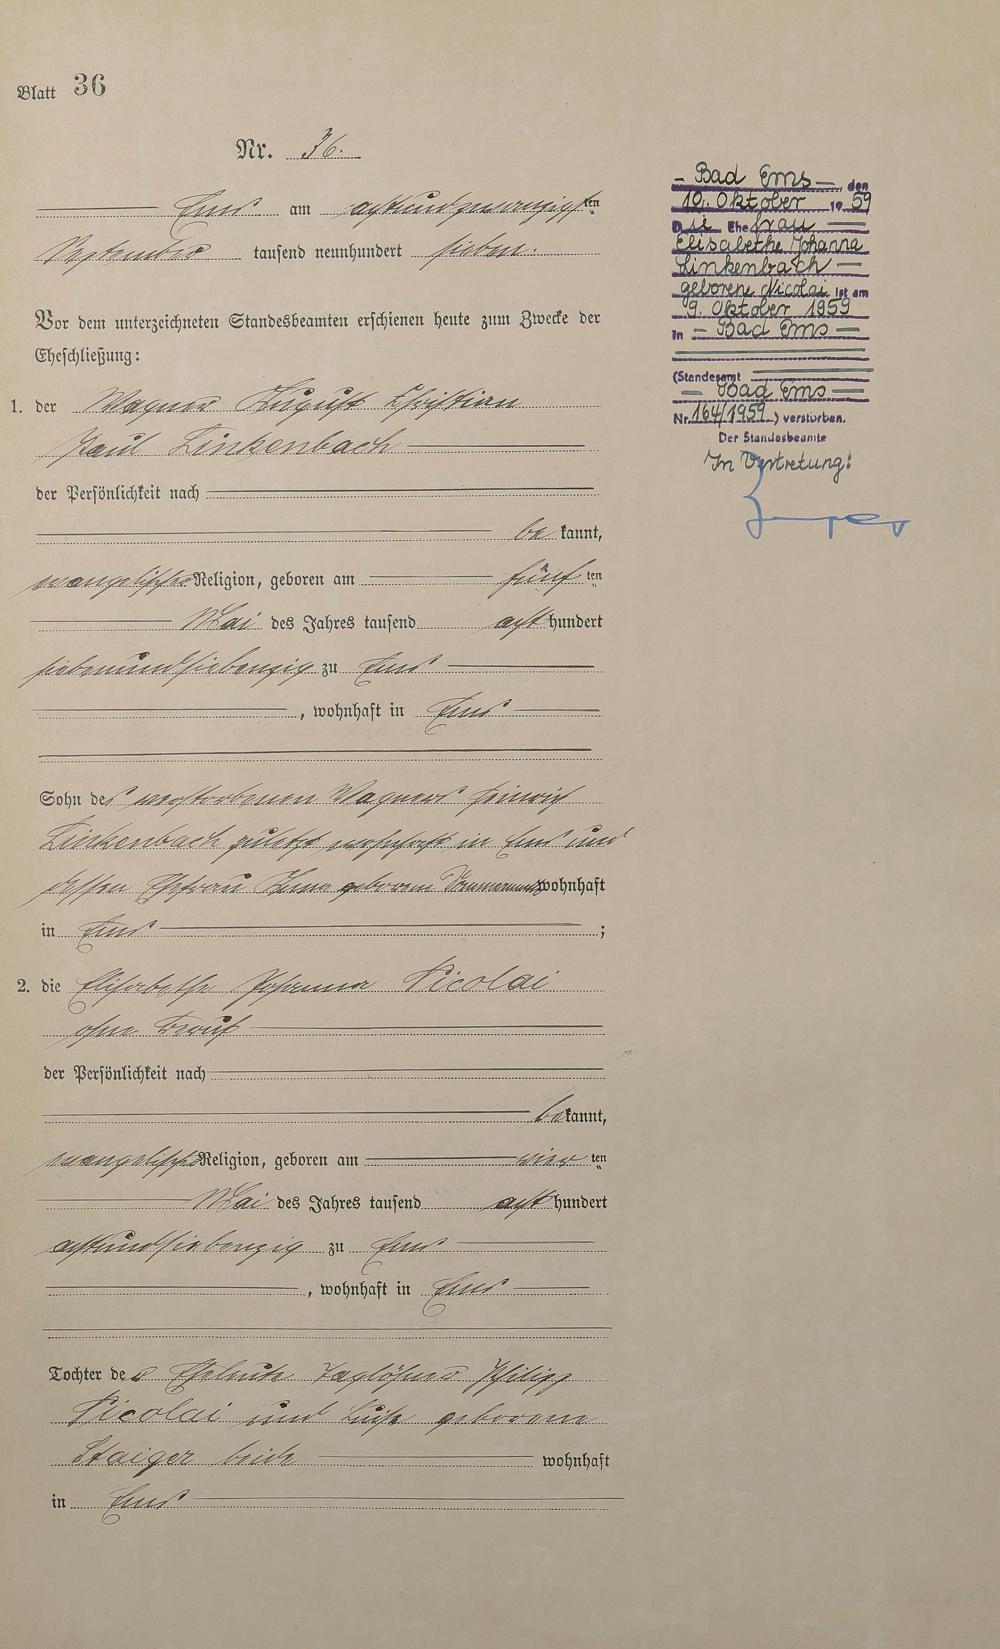 Blatt 36
Nr. 36.
Ems am achtundzwanzigsten
September tausend neunhundert sieben.
Vor dem unterzeichneten Standesbeamten erschienen heute zum Zwecke der
Eheschließung:
1. der Wagner August Christian
Paul Linkenbach
der Persönlichkeit nach
be kannt,
evangelischer Religion, geboren am fünf ten
Mai des Jahres tausend acht hundert
siebenundsiebenzig zu Ems
, wohnhaft in Ems
Sohn des verstorbenen Wagners Heinrich
Linkenbach zuletzt wohnhaft in Ems und
dessen Ehefrau Anna geborene wohnhaft
in Ems ;
2. die Elisabethe Johanna Nicolai
ohne Beruf
der Persönlichkeit nach
be kannt,
evangelischer Religion, geboren am vier ten
Mai des Jahres tausend acht hundert
achtundsiebenzig zu Ems
, wohnhaft in Ems
Tochter der Eheleute Taglöhner Philipp
Nicolai und Luise geborene
Staiger beide wohnhaft
in Ems
– Bad Ems –, den
10. Oktober 1959
Die Ehefrau
Elisabethe Johanna
Linkenbach
geborene Nicolai ist am
9. Oktober 1959
in – Bad Ems –
(Standesamt
– Bad Ems –
Nr. 164/1959) verstorben.
Der Standesbeamte
In Vertretung: